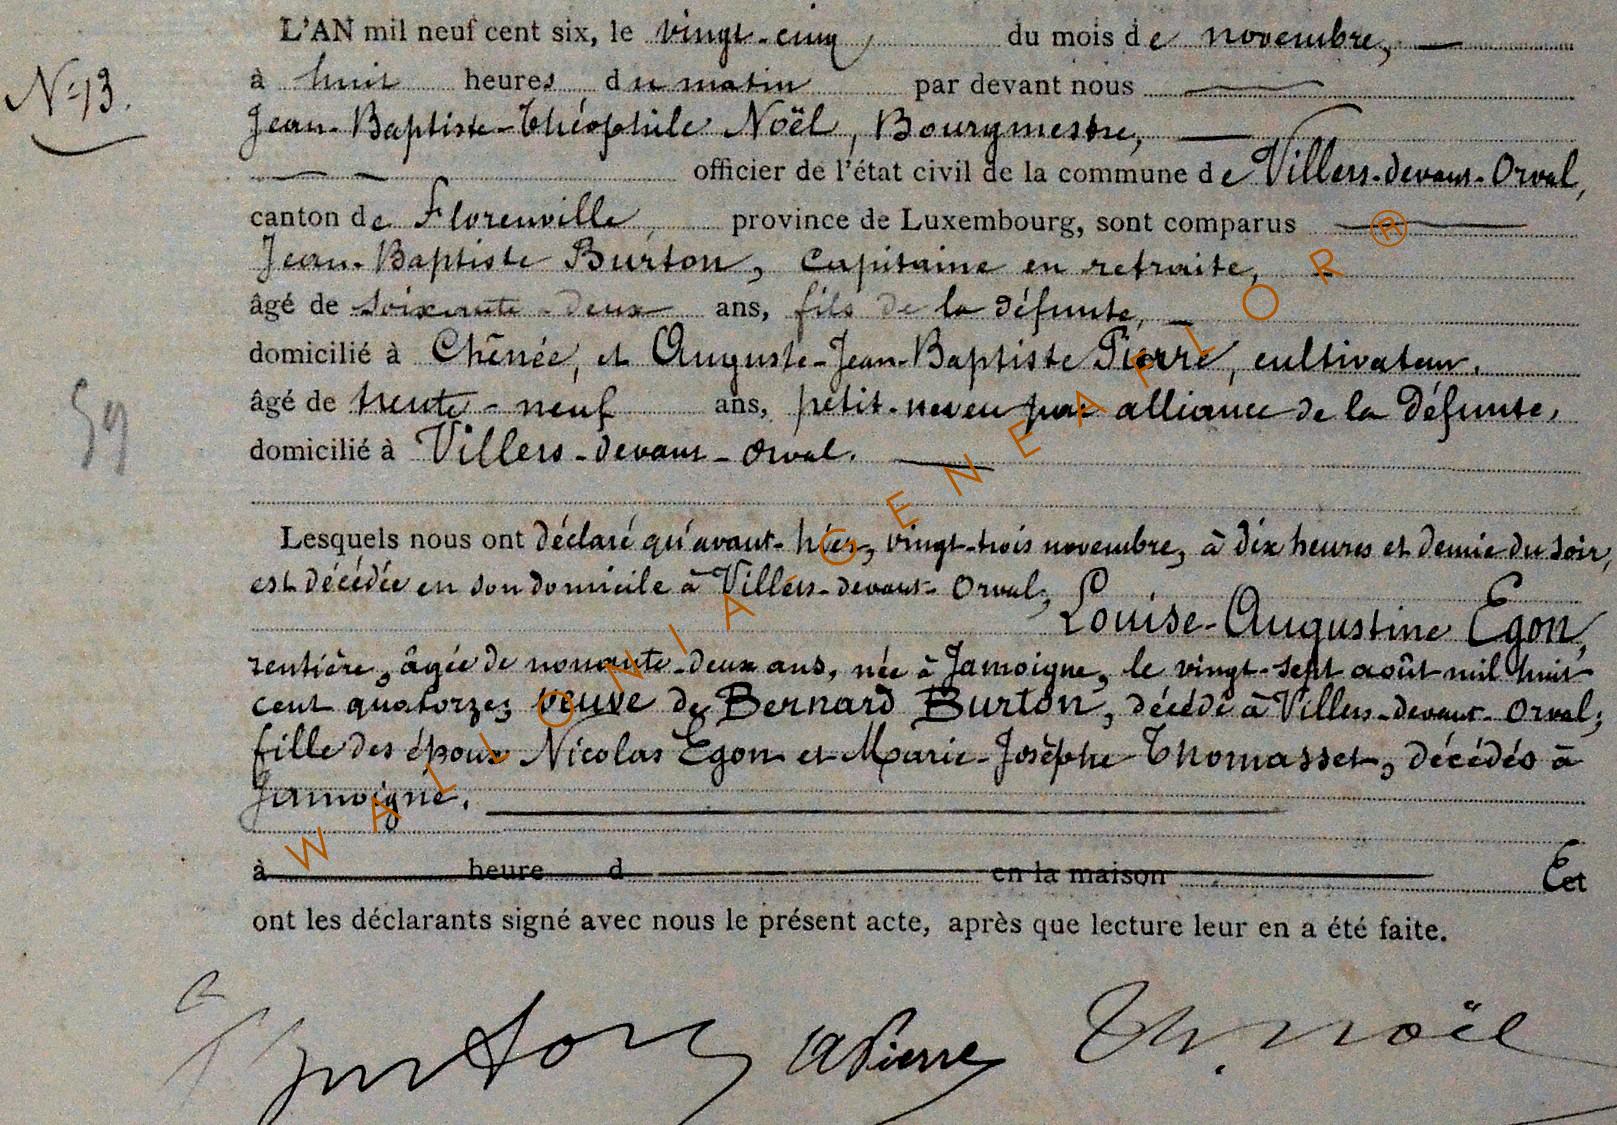 L'AN mil neuf cent six, le vingt-cinq du mois de novembre,
N° 13.
à huit heures du matin par devant nous
Jean-Baptiste-Théophile Noël, Bourgmestre,
officier de l'état civil de la commune de Villers-devant-Orval,
canton de Florenville, province de Luxembourg, sont comparus
Jean-Baptiste Burton, capitaine en retraite,
âgé de soixante-deux ans, fils de la défunte,
domicilié à Chênée, et Auguste-Jean-Baptiste Pierre, cultivateur,
âgé de trente-neuf ans, petit-neveu par alliance de la défunte,
59
domicilié à Villers-devant-Orval.
Lesquels nous ont déclaré qu'avant-hier, vingt-trois novembre, à dix heures et demie du soir,
est décédée en son domicile à Villers-devant-Orval,
Louise-Augustine Egon,
rentière, âgée de nonante-deux ans, née à Jamoigne, le vingt-sept août mil huit
cent quatorze; veuve de Bernard Burton, décédé à Villers-devant-Orval;
fille des époux Nicolas Egon et Marie-Josèphe Thomasset, décédés à
Jamoigne.
à heure d en la maison Eet
ont les déclarants signé avec nous le présent acte, après que lecture leur en a été faite.
Burton APierre Th. Noël
WALLONIA GENEAFLOR ®